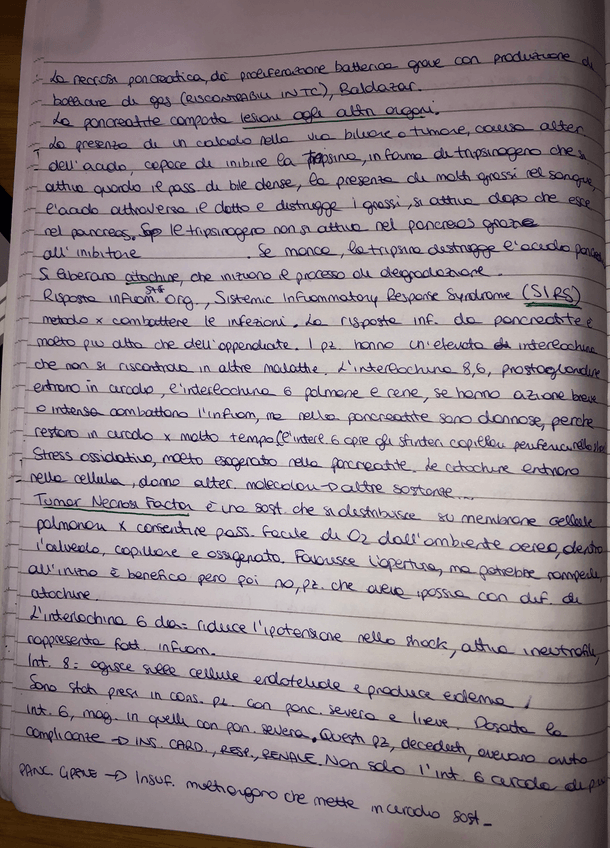 La necrosi pancreatica, da proliferazione batterica grave con produzione di
bollicine di gas (RISCONTRABILI IN TC), Baldazar.
La pancreatite comporta lesioni agli altri organi.
La presenza di un calcolo nella via biliare o tumore, causa alter.
dell'acido, capace di inibire la tripsina, in forma di tripsinogeno che si
attiva quando il pass. di bile dense, la presenza di molti grassi nel sangue,
l'acido attraversa il dotto e distrugge i grassi, si attiva dopo che esce
nel pancreas. Se il tripsinogeno non si attiva nel pancreas grazie
all'inibitore . Se manca, la tripsina distrugge l'acido
Si liberano citochine, che iniziano il processo di degradazione.
Risposta infiam. sist. org., Sistemic Inflammatory Response Syndrome (SIRS)
metodo x combattere le infezioni. La risposta inf. da pancreatite è
molto più alta che dell'appendicite. I pz. hanno un'elevata interleochina
che non si riscontrano in altre malattie. L'interleochina 8,6, prostaglandine
entrano in circolo, l'interleochina 6 polmone e rene, se hanno azione breve
o intensa combattono l'infiam, ma nella pancreatite sono dannose, perche
restano in circolo x molto tempo (l'interl. 6 apre gli sfinteri capillari periferici
Stress ossidativo, molto esagerato nella pancreatite. Le citochine entrano
nella cellula, danno alter. molecolari → altre sostanze....
Tumor Necrosi Factor è una sost. che si distribuisce su membrane cellule
polmonari x consentire pass. facile di O2 dall'ambiente aereo, dentro
l'alveolo, capillare e ossigenato. Favorisce l'apertura, ma potrebbe romperli,
all'inizio è benefico pero poi no, pz. che aveva ipossia con dif. di
citochine.
L'interlochina 6 da= riduce l'ipotensione nello shock, attiva i neutrofili,
rappresenta fatt. infiam.
Int. 8= agisce sulle cellule endoteliale e produce edema.
Sono stati presi in cons. pz. con panc. severa e lieve. Dosata la
int. 6, mag. in quelli con pan. severa. Questi pz, deceduti, avevano avuto
complicanze → INS. CARD., RESP., RENALE. Non solo l'int. 6 circola di più
PANC. GRAVE → Insuf. multiorgano che mette in circolo sost.